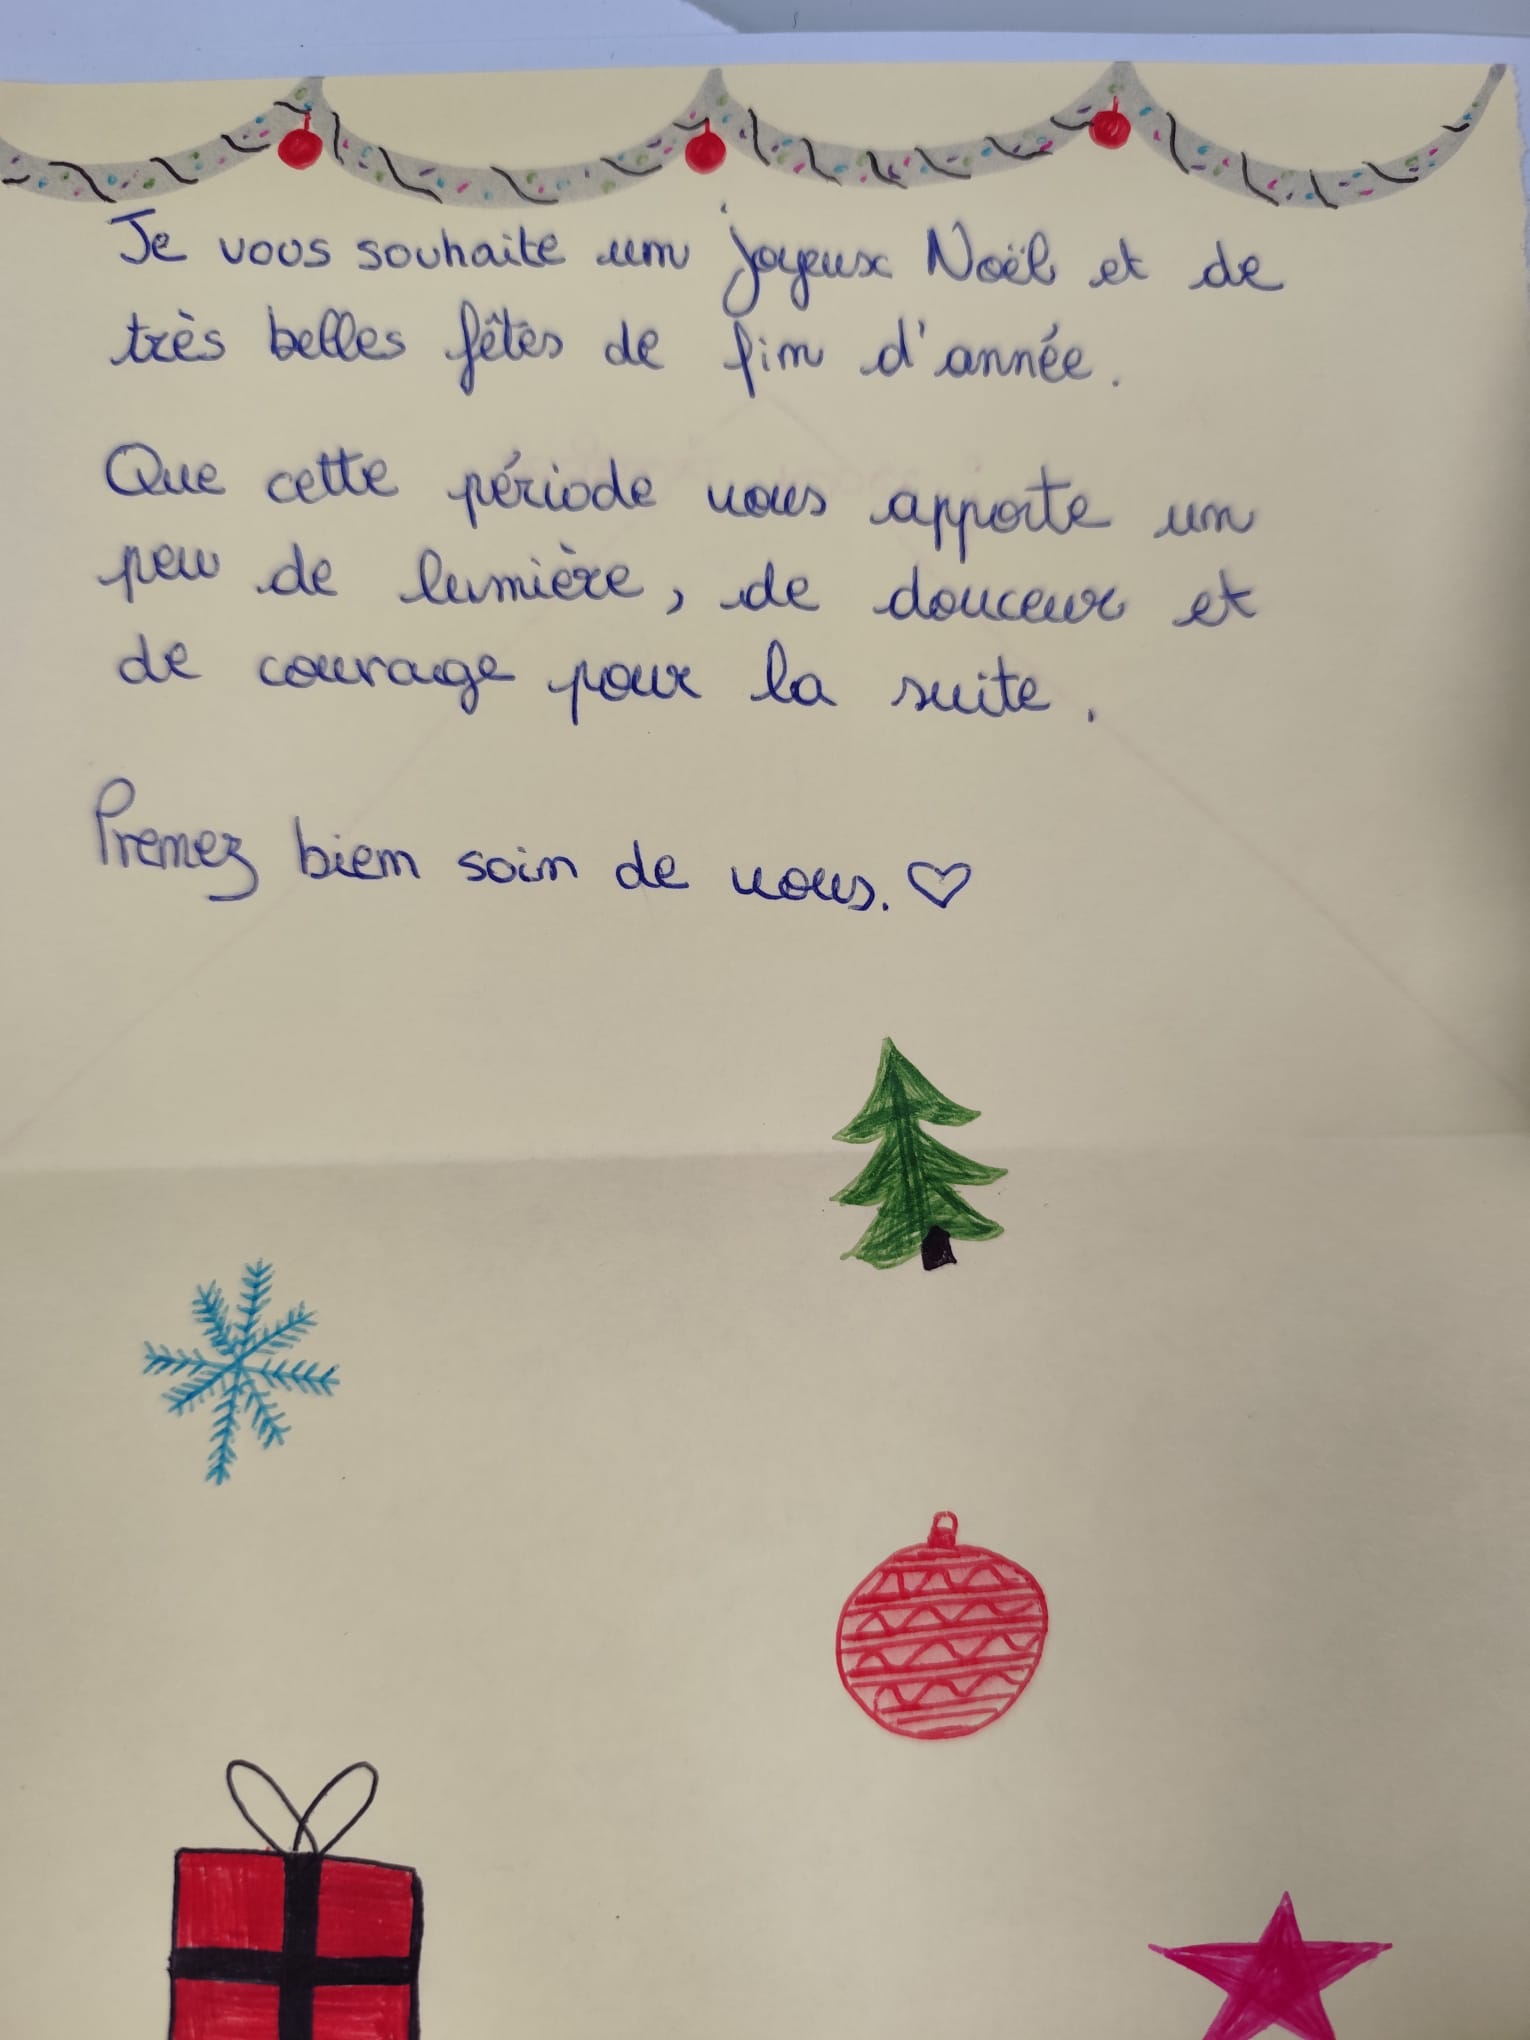 Je vous souhaite un joyeux Noël et de
très belles fêtes de fin d'année.
Que cette période vous apporte un
peu de lumière, de douceur et
de courage pour la suite.
Prenez bien soin de vous. ♡